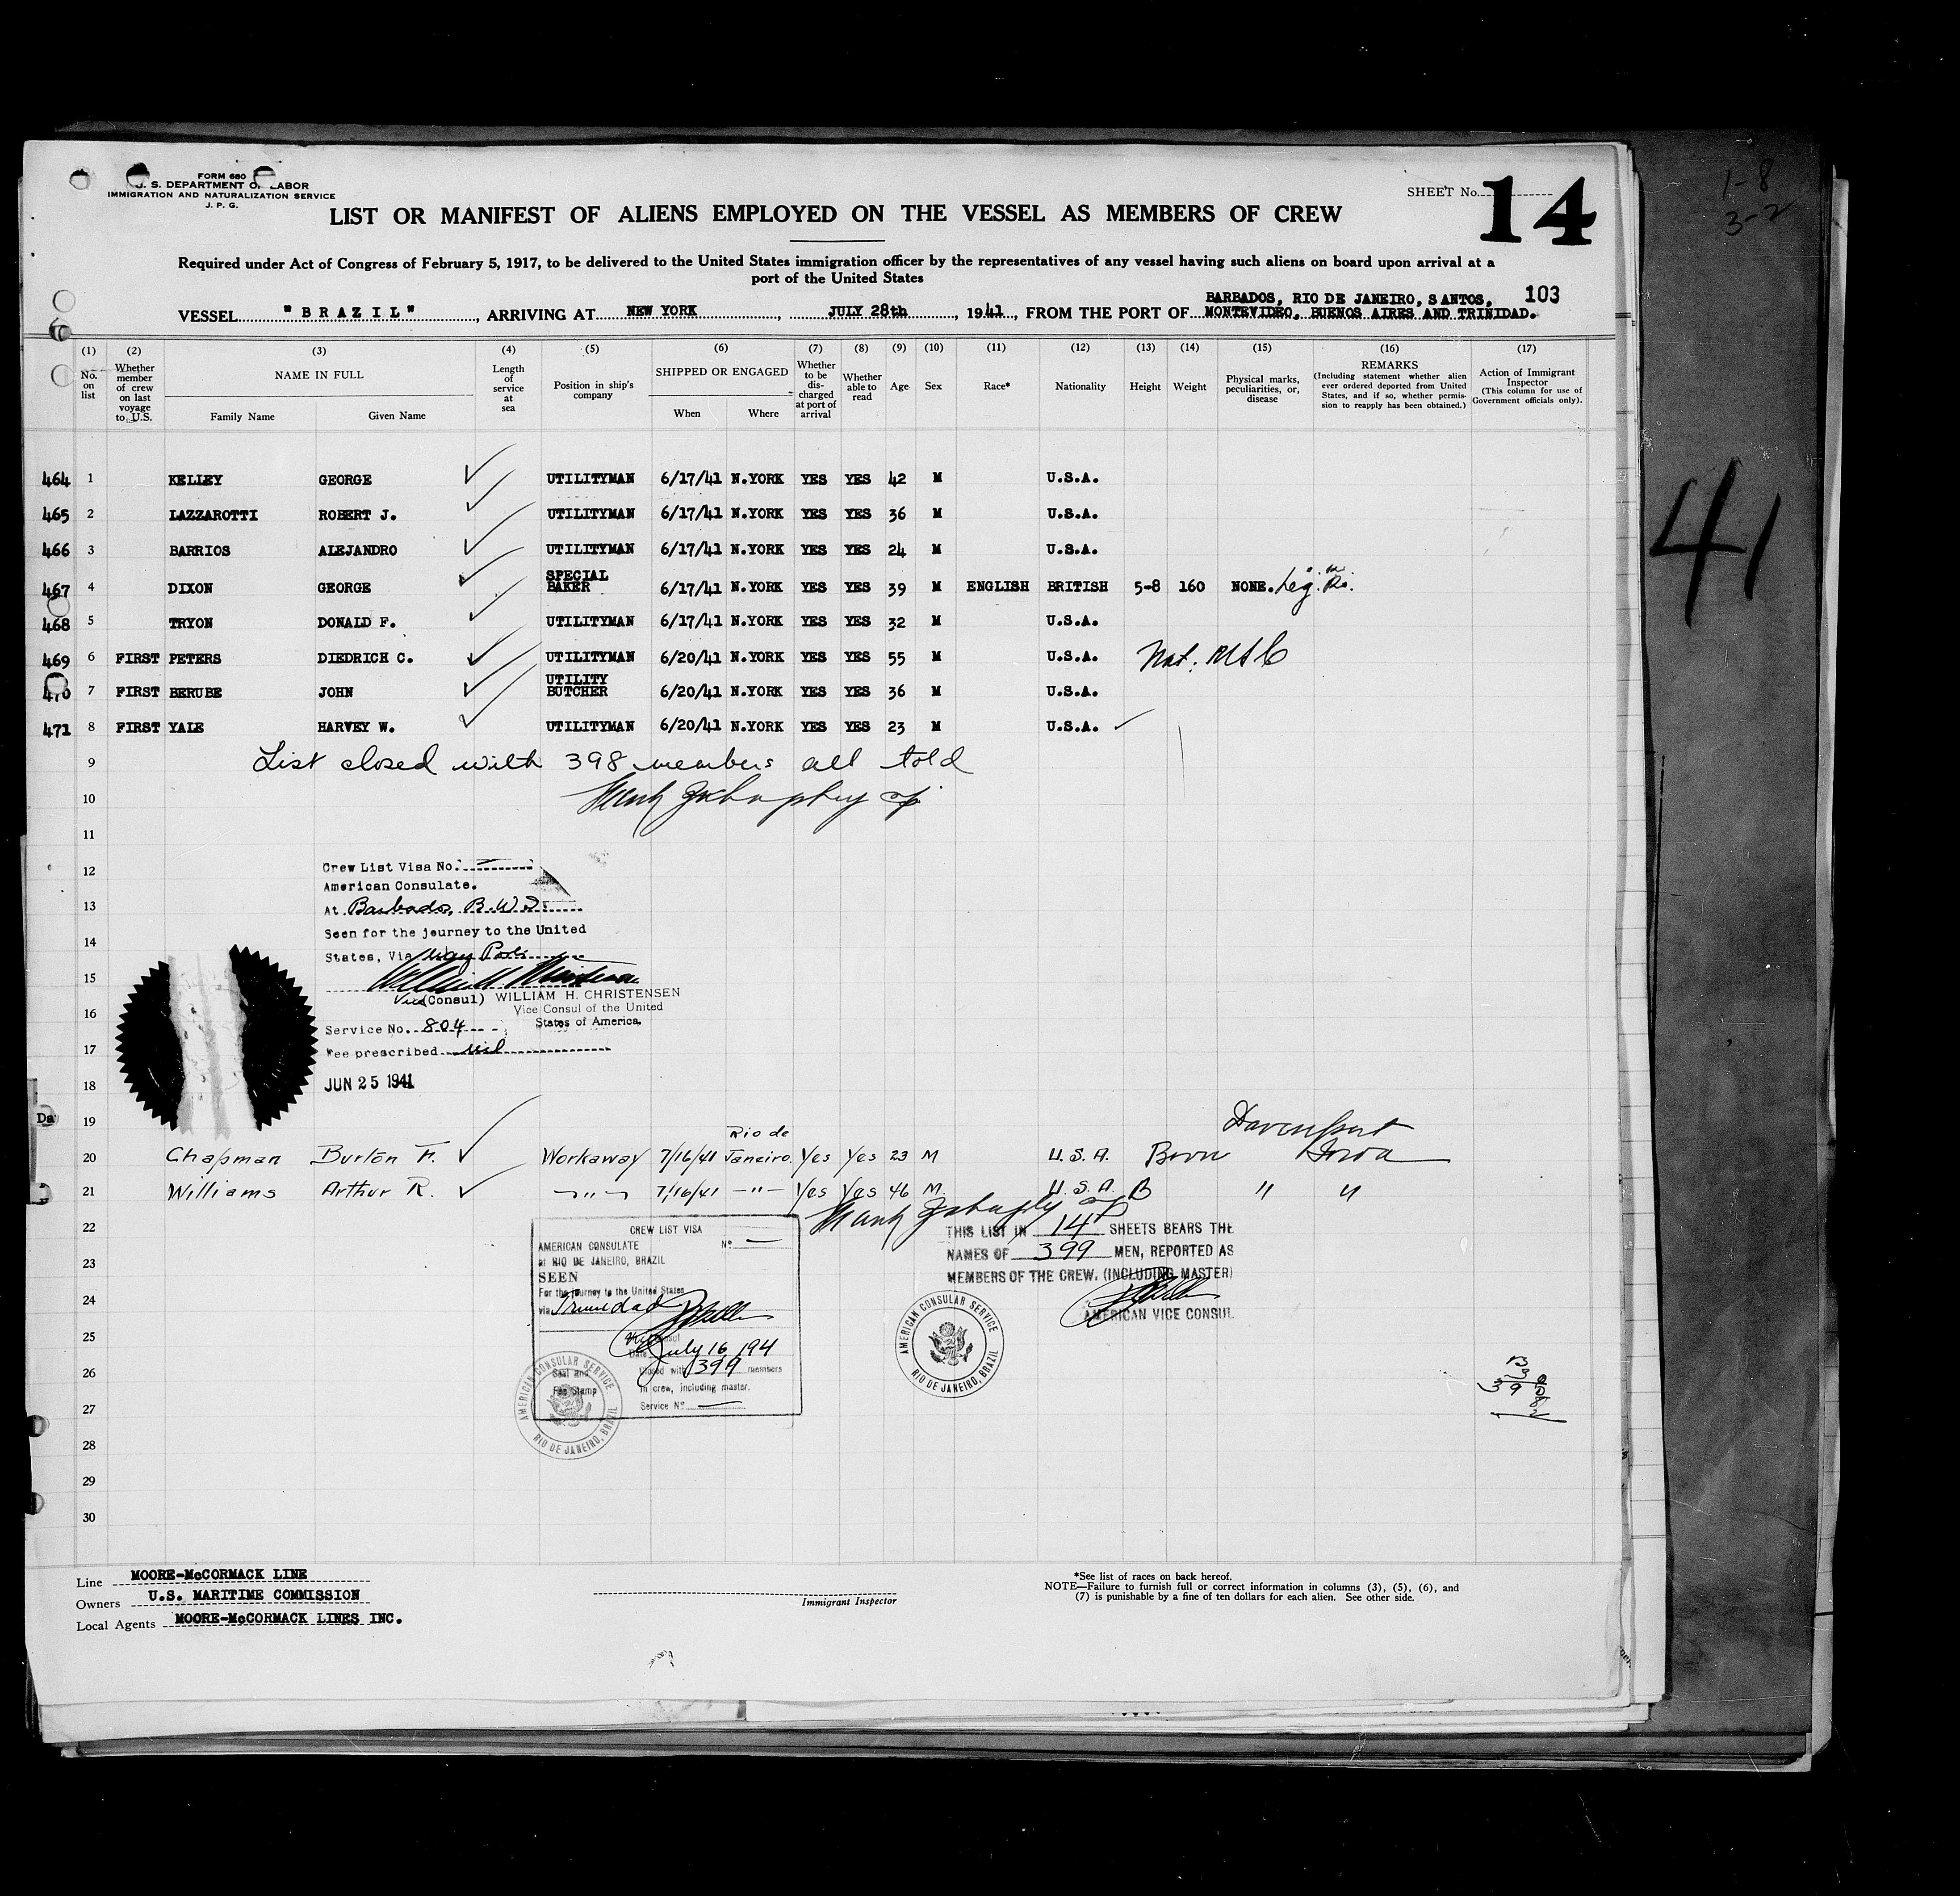 FORM 680
U. S. DEPARTMENT OF LABOR
IMMIGRATION AND NATURALIZATION SERVICE
J. P. G.
SHEET No. 14
LIST OR MANIFEST OF ALIENS EMPLOYED ON THE VESSEL AS MEMBERS OF CREW
Required under Act of Congress of February 5, 1917, to be delivered to the United States immigration officer by the representatives of any vessel having such aliens on board upon arrival at a
port of the United States
BARBADOS, RIO DE JANEIRO, SANTOS, 103
VESSEL "BRAZIL", ARRIVING AT NEW YORK, JULY 28th, 1941, FROM THE PORT OF MONTEVIDEO, BUENOS AIRES AND TRINIDAD.
(1) (2) (3) (4) (5) (6) (7) (8) (9) (10) (11) (12) (13) (14) (15) (16) (17)
No. on list
Whether member of crew on last voyage to U.S.
NAME IN FULL
Family Name Given Name
Length of service at sea
Position in ship's company
SHIPPED OR ENGAGED
When Where
Whether to be discharged at port of arrival
Whether able to read
Age
Sex
Race*
Nationality
Height
Weight
Physical marks, peculiarities, or, disease
REMARKS
(Including statement whether alien ever ordered deported from United States, and if so, whether permission to reapply has been obtained.)
Action of Immigrant Inspector
(This column for use of Government officials only).
464 1 KELLEY GEORGE UTILITYMAN 6/17/41 N.YORK YES YES 42 M U.S.A.
465 2 LAZZAROTTI ROBERT J. UTILITYMAN 6/17/41 N.YORK YES YES 36 M U.S.A.
466 3 BARRIOS ALEJANDRO UTILITYMAN 6/17/41 N.YORK YES YES 24 M U.S.A.
467 4 DIXON GEORGE SPECIAL BAKER 6/17/41 N.YORK YES YES 39 M ENGLISH BRITISH 5-8 160 NONE.
468 5 TRYON DONALD F. UTILITYMAN 6/17/41 N.YORK YES YES 32 M U.S.A.
469 6 FIRST PETERS DIEDRICH C. UTILITYMAN 6/20/41 N.YORK YES YES 55 M U.S.A. Nat.
470 7 FIRST BERUBE JOHN UTILITY BUTCHER 6/20/41 N.YORK YES YES 36 M U.S.A.
471 8 FIRST YALE HARVEY W. UTILITYMAN 6/20/41 N.YORK YES YES 23 M U.S.A.
9 List closed with 398 members all told
10
11
12 Crew List Visa No.
American Consulate.
13 At Barbados, B.W.I.
14 Seen for the journey to the United
States, Via Way Ports
15
Vice (Consul) WILLIAM H. CHRISTENSEN
16 Vice Consul of the United
States of America.
Service No. 804
17 Fee prescribed nil
18 JUN 25 1941
19 Davenport
20 Chapman Burton F. Workaway 7/16/41 Rio de Janeiro. Yes Yes 23 M U.S.A. Born Iowa
21 Williams Arthur R. " 7/16/41 " Yes Yes 46 M U.S.A. B " "
22
CREW LIST VISA
AMERICAN CONSULATE No —
at RIO DE JANEIRO, BRAZIL
23 SEEN
For the journey to the United States
24 via Trinidad
25 Vice Consul
Date July 16 194
26 Closed with 399 members
in crew, including master.
Seal and
Fee Stamp
27 Service No —
AMERICAN CONSULAR SERVICE
RIO DE JANEIRO, BRAZIL
THIS LIST IN 14 SHEETS BEARS THE
NAMES OF 399 MEN, REPORTED AS
MEMBERS OF THE CREW. (INCLUDING MASTER)
AMERICAN VICE CONSUL
AMERICAN CONSULAR SERVICE
RIO DE JANEIRO, BRAZIL
28
29
30
Line MOORE-McCORMACK LINE
Owners U.S. MARITIME COMMISSION
Local Agents MOORE-McCORMACK LINES INC.
Immigrant Inspector
*See list of races on back hereof.
NOTE—Failure to furnish full or correct information in columns (3), (5), (6), and
(7) is punishable by a fine of ten dollars for each alien. See other side.
1-8
3-2
41